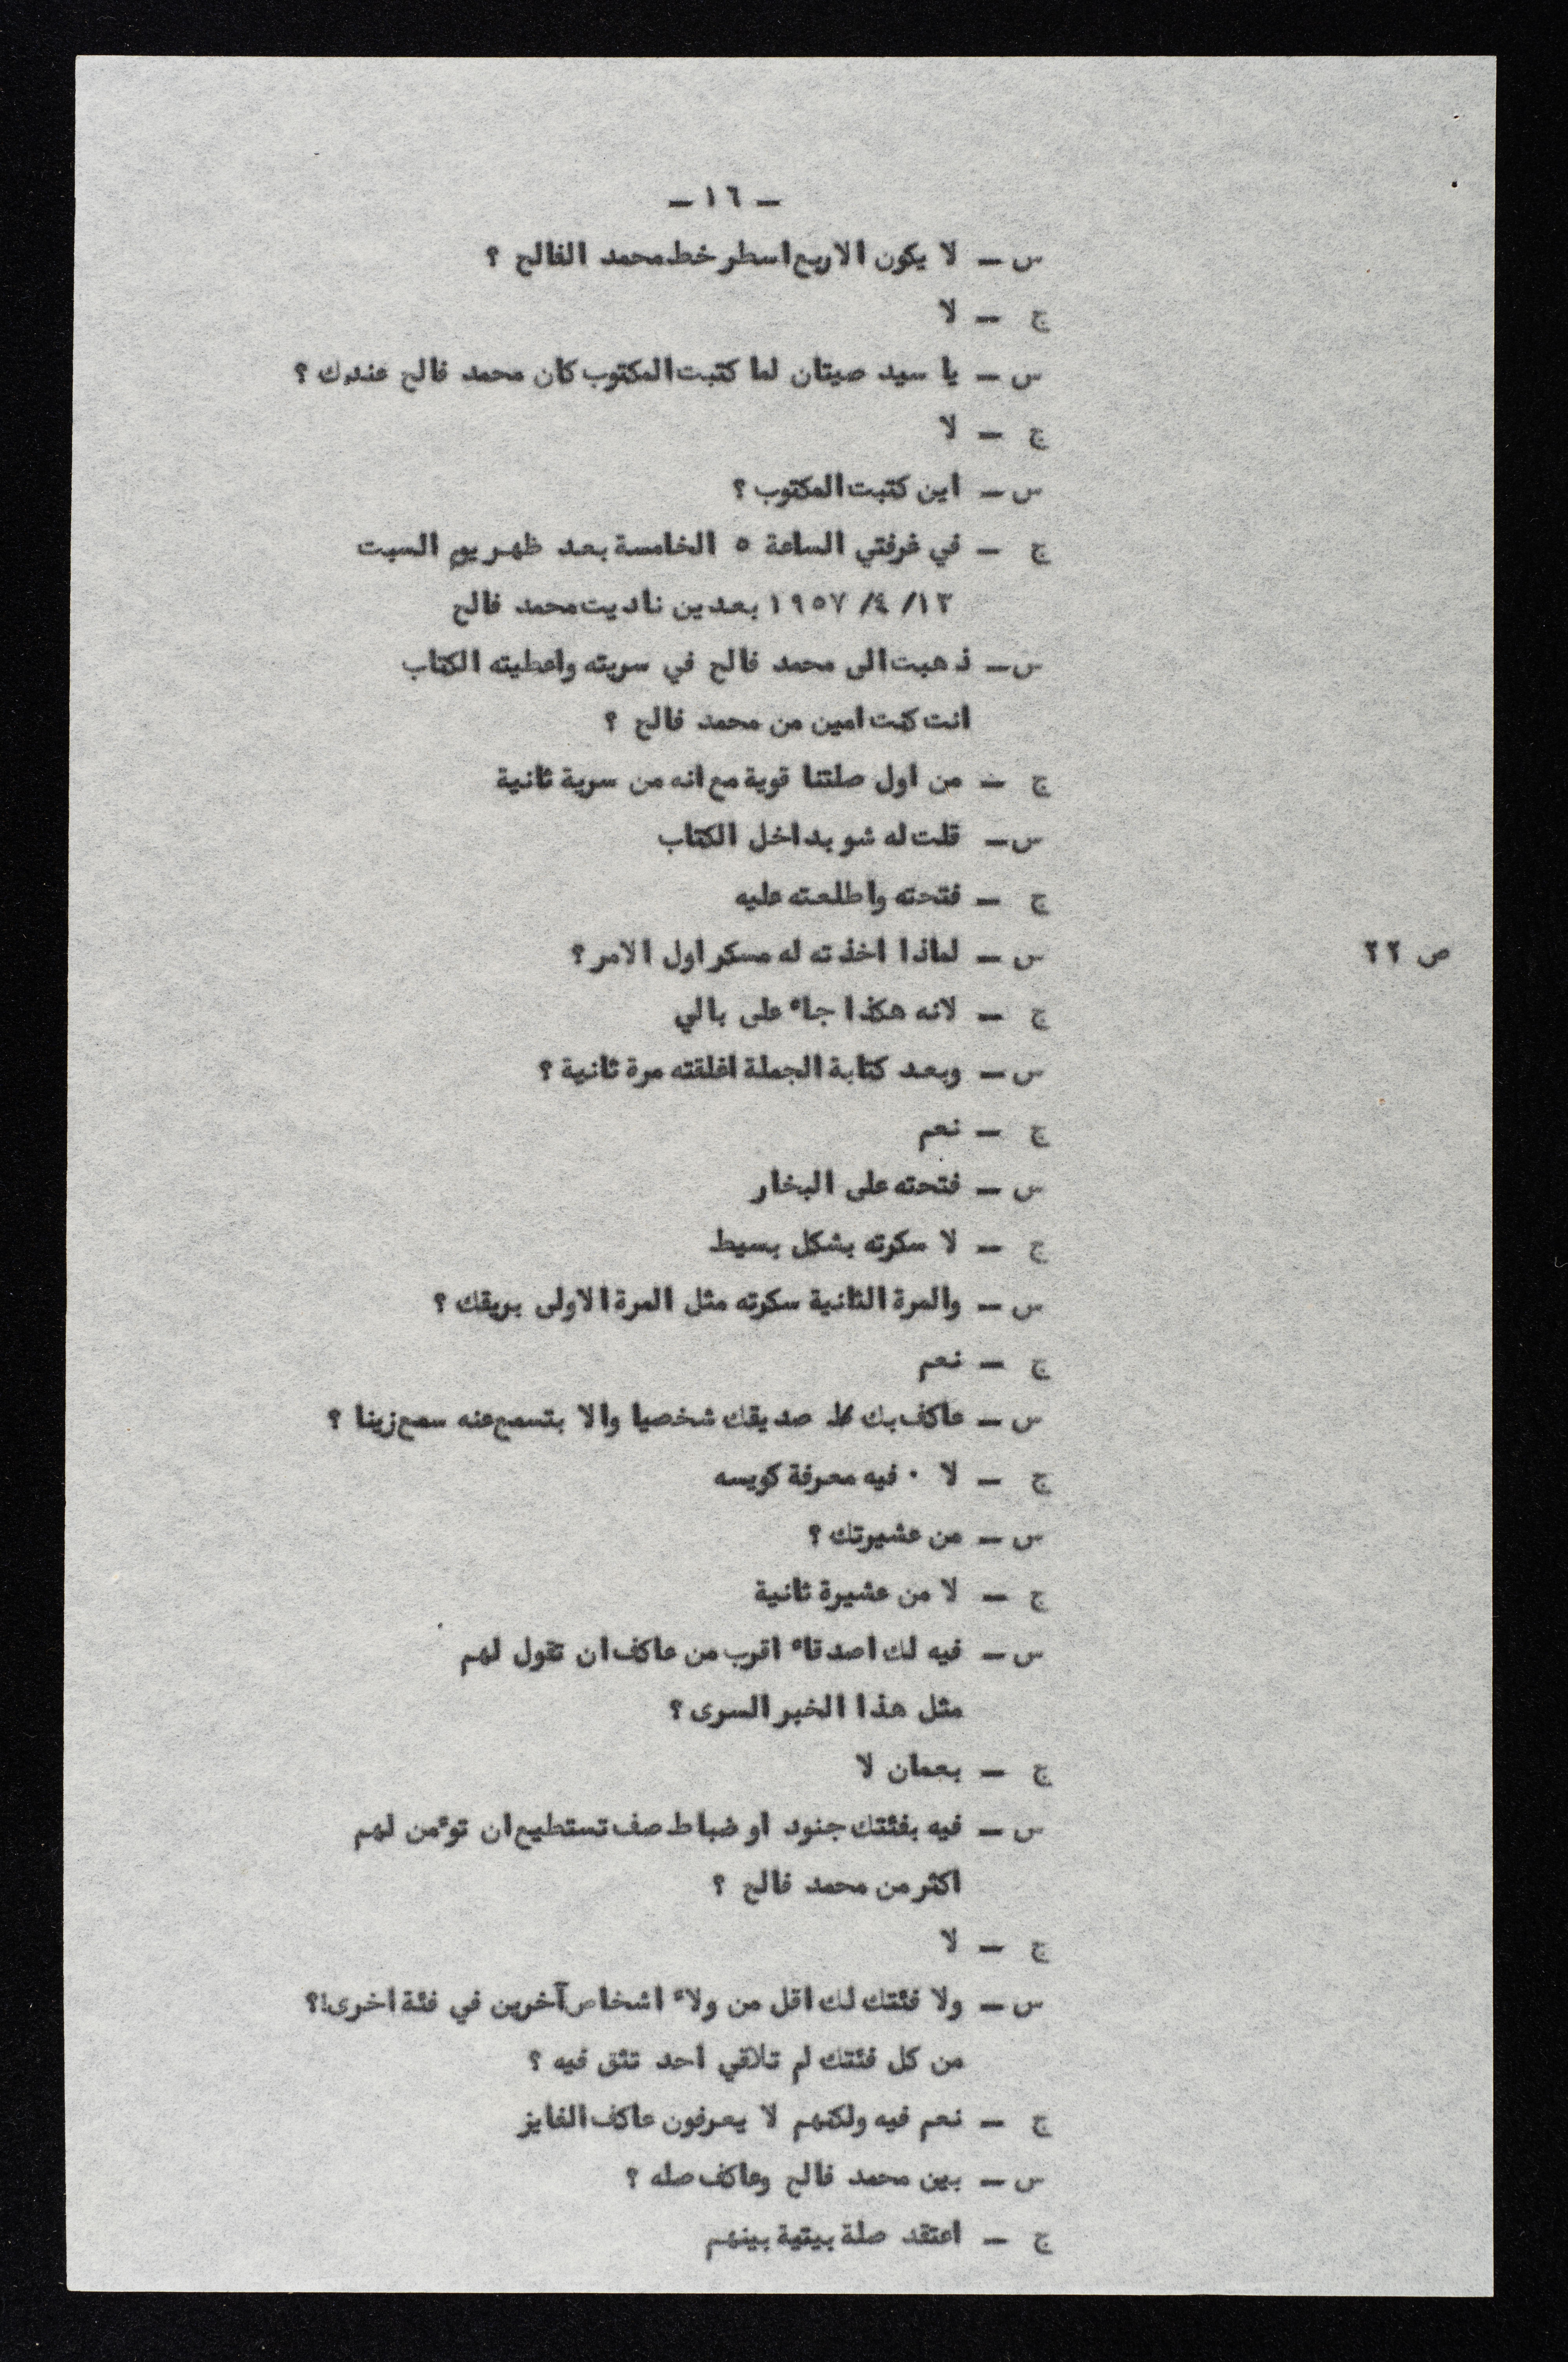 — ١٦ —
س — لا يكون الاربع اسطر خط محمد الفالح ؟
ج — لا
س — يا سيد صيتان لما كتبت المكتوب كان محمد فالح عندك ؟
ج — لا
س — اين كتبت المكتوب ؟
ج — في غرفتي الساعة ٥ الخامسة بعد ظهر يوم السبت
١٣/ ٤/ ١٩٥٧ بعدين ناديت محمد فالح
س — ذهبت الى محمد فالح في سريته واعطيته الكتاب
انت كنت امين من محمد فالح ؟
ج — من اول صلتنا قوية مع انه من سرية ثانية
س — قلت له شو بداخل الكتاب
ج — فتحته واطلعته عليه
ص ٢٢ س — لماذا اخذته له مسكر اول الامر ؟
ج — لانه هكذا جاء على بالي
س — وبعد كتابة الجملة اغلقته مرة ثانية ؟
ج — نعم
س — فتحته على البخار
ج — لا سكرته بشكل بسيط
س — والمرة الثانية سكرته مثل المرة الاولى بريقك ؟
ج — نعم
س — عاكف بك صديقك شخصيا والا بتسمع عنه سمع زينا ؟
ج — لا ٠ فيه معرفة كويسه
س — من عشيرتك ؟
ج — لا من عشيرة ثانية
س — فيه لك اصدقاء اقرب من عاكف ان تقول لهم
مثل هذا الخبر السرى ؟
ج — بعمان لا
س — فيه بفئتك جنود او ضباط صف تستطيع ان توءمن لهم
اكثر من محمد فالح ؟
ج — لا
س — ولا فئتك لك اقل من ولاء اشخاص آخرين في فئة اخرى!؟
من كل فئتك لم تلاقي احد تثق فيه ؟
ج — نعم فيه ولكنهم لا يعرفون عاكف الفايز
س — بين محمد فالح وعاكف صله ؟
ج — اعتقد صلة بيتية بينهم